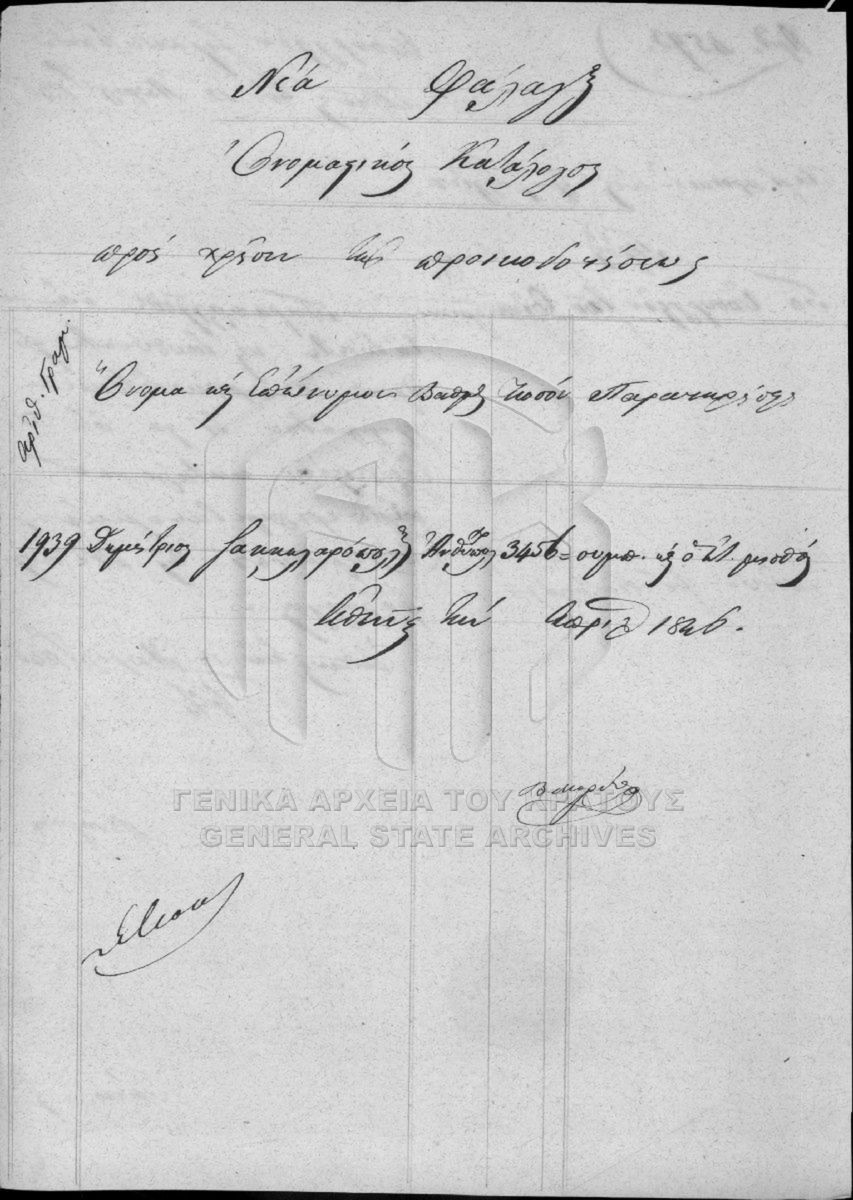 Νέα Φάλαγξ
Ὀνομαστικός Κατάλογος
πρός χρῆσιν τῆς προικοδοτήσεως
Ἀριθ. Γραμ.
Ὄνομα καὶ Ἐπώνυμον Βαθμός Ποσόν Παρατηρήσεις
1939 Δημήτριος 3456 = συμπ. καὶ ὁ μισθός
Ἀθήνας τὴν Ἀπριλ 1846.
ΓΕΝΙΚΑ ΑΡΧΕΙΑ ΤΟΥ ΚΡΑΤΟΥΣ
GENERAL STATE ARCHIVES